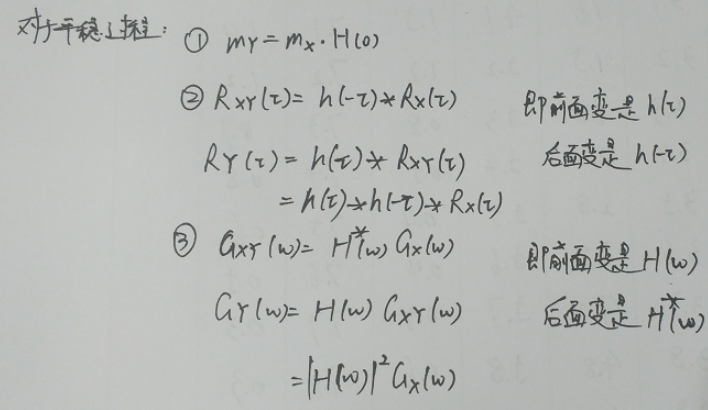 对于平稳过程: ① mY = mX · H(0)
② RXY(τ) = h(-τ) * RX(τ) 即前面变是 h(τ)
RY(τ) = h(τ) * RXY(τ) 后面变是 h(-τ)
= h(τ) * h(-τ) * RX(τ)
③ GXY(ω) = H*(ω) GX(ω) 即前面变是 H(ω)
GY(ω) = H(ω) GXY(ω) 后面变是 H*(ω)
= |H(ω)|² GX(ω)